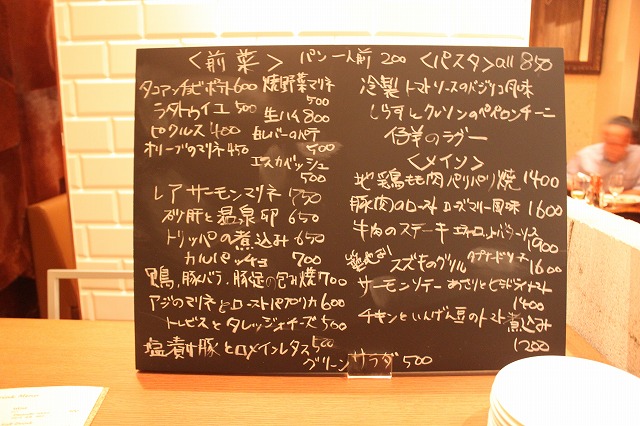 〈前菜〉 パン一人前 200
タコアンチョビポテト600
ラタトゥイユ 500
ピクルス 400
オリーブのマリネ 450
焼野菜マリネ
500
生ハム 800
白レバーのパテ
500
エスカベッシュ
500
レアサーモンマリネ 750
砂肝と温泉卵 650
トリッパの煮込み 650
カルパッチョ 700
鴨,豚バラ,豚足の包み焼 700
アジのマリネとローストパプリカ 600
トレビスとタレッジョチーズ 500
塩漬け豚とロメインレタス 500
グリーンサラダ 500
〈パスタ〉all 850
冷製トマトソースのバジリコ風味
しらすとクレソンのペペロンチーニ
仔羊のラグー
〈メイン〉
地鶏もも肉パリパリ焼 1400
豚肉のロースト ローズマリー風味 1600
牛肉のステーキ
1900
スズキのグリル
1600
サーモンソテー あさりとセミドライトマト
1400
チキンといんげん豆のトマト煮込み
1200